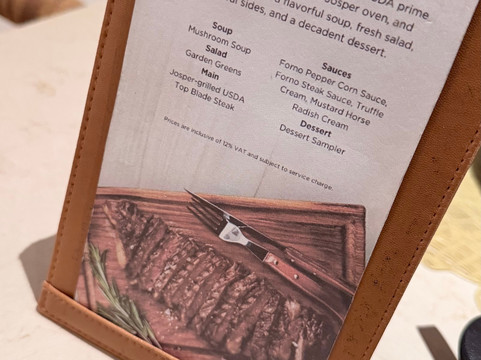 DA prime
Josper oven, and
a flavorful soup, fresh salad,
sides, and a decadent dessert.
Soup
Mushroom Soup
Salad
Garden Greens
Main
Josper-grilled USDA
Top Blade Steak
Sauces
Forno Pepper Corn Sauce,
Forno Steak Sauce, Truffle
Cream, Mustard Horse
Radish Cream
Dessert
Dessert Sampler
Prices are inclusive of 12% VAT and subject to service charge.